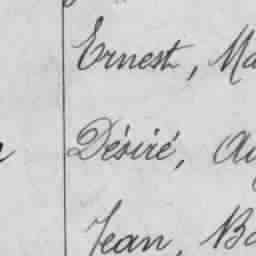 Ernest, Ma
Désiré, Au
Jean, Ba